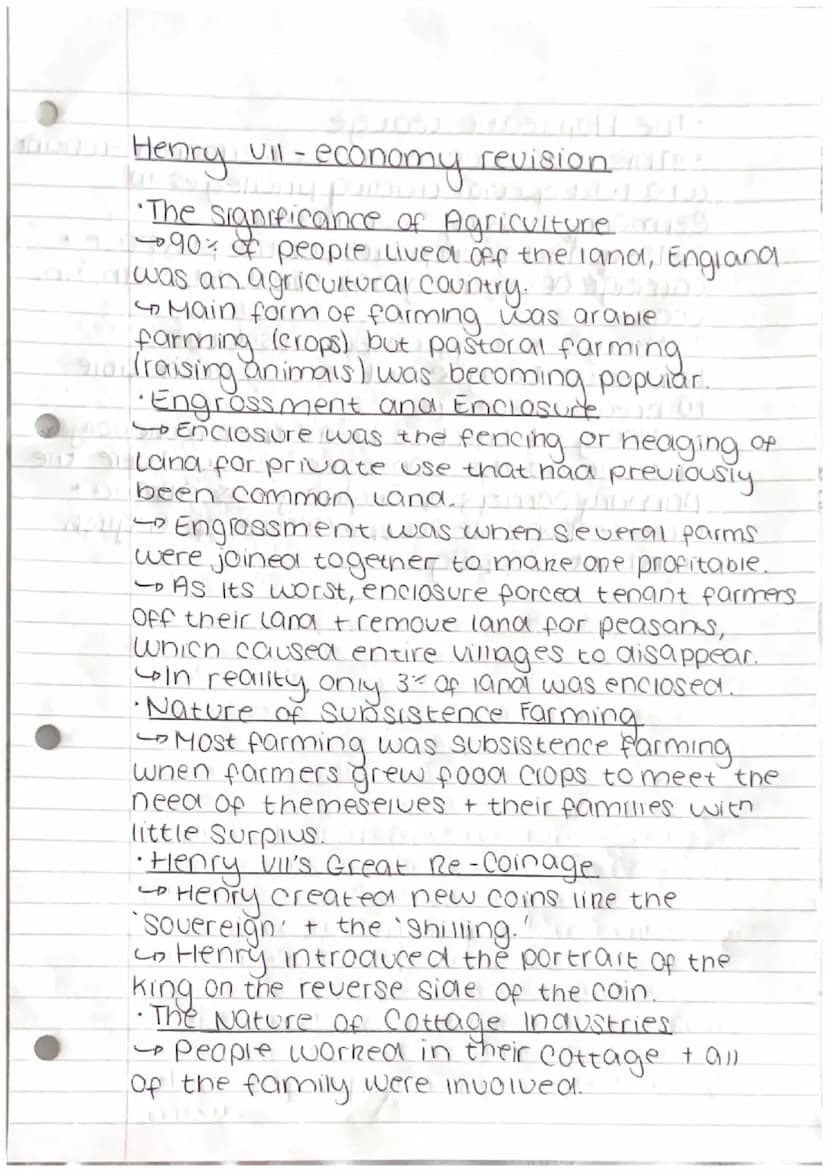 Henry VII - economy revision
· The significance of Agriculture
↳ 90% of people lived off the land, England
was an agricultural country.
↳ Main form of farming was arable
farming (crops) but pastoral farming
(raising animals) was becoming popular.
· Engrossment and Enclosure
↳ Enclosure was the fencing or hedging of
land for private use that had previously
been common land.
↳ Engrossment was when several farms
were joined together to make one profitable.
↳ As its worst, enclosure forced tenant farmers
off their land + remove land for peasans,
which caused entire villages to disappear.
↳ In reality, only 3% of land was enclosed.
· Nature of Subsistence Farming
↳ Most farming was subsistence farming
when farmers grew food crops to meet the
need of themeselves + their families with
little surplus.
· Henry VII's Great Re-Coinage
↳ Henry created new coins like the
'sovereign' + the 'shilling.'
↳ Henry introduced the portrait of the
king on the reverse side of the coin.
· The Nature of Cottage Industries
↳ People worked in their cottage + all
of the family were involved.